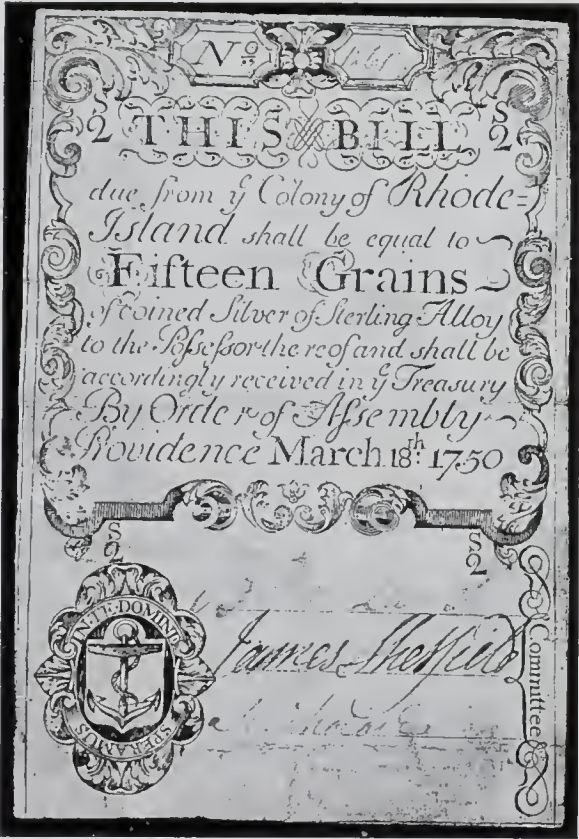 Nº
S 2 THIS BILL S 2
due from yͤ Colony of Rhode=
Island shall be equal to
Fifteen Grains
of Coined Silver of Sterling Alloy
to the Poſseſsor thereof and shall be
accordingly received in yͤ Treasury
By Order of Aſsembly
Providence March 18th: 1750
S 2
S 2
IN TE DOMINE
SPERAMUS
James Sheffield
Committee